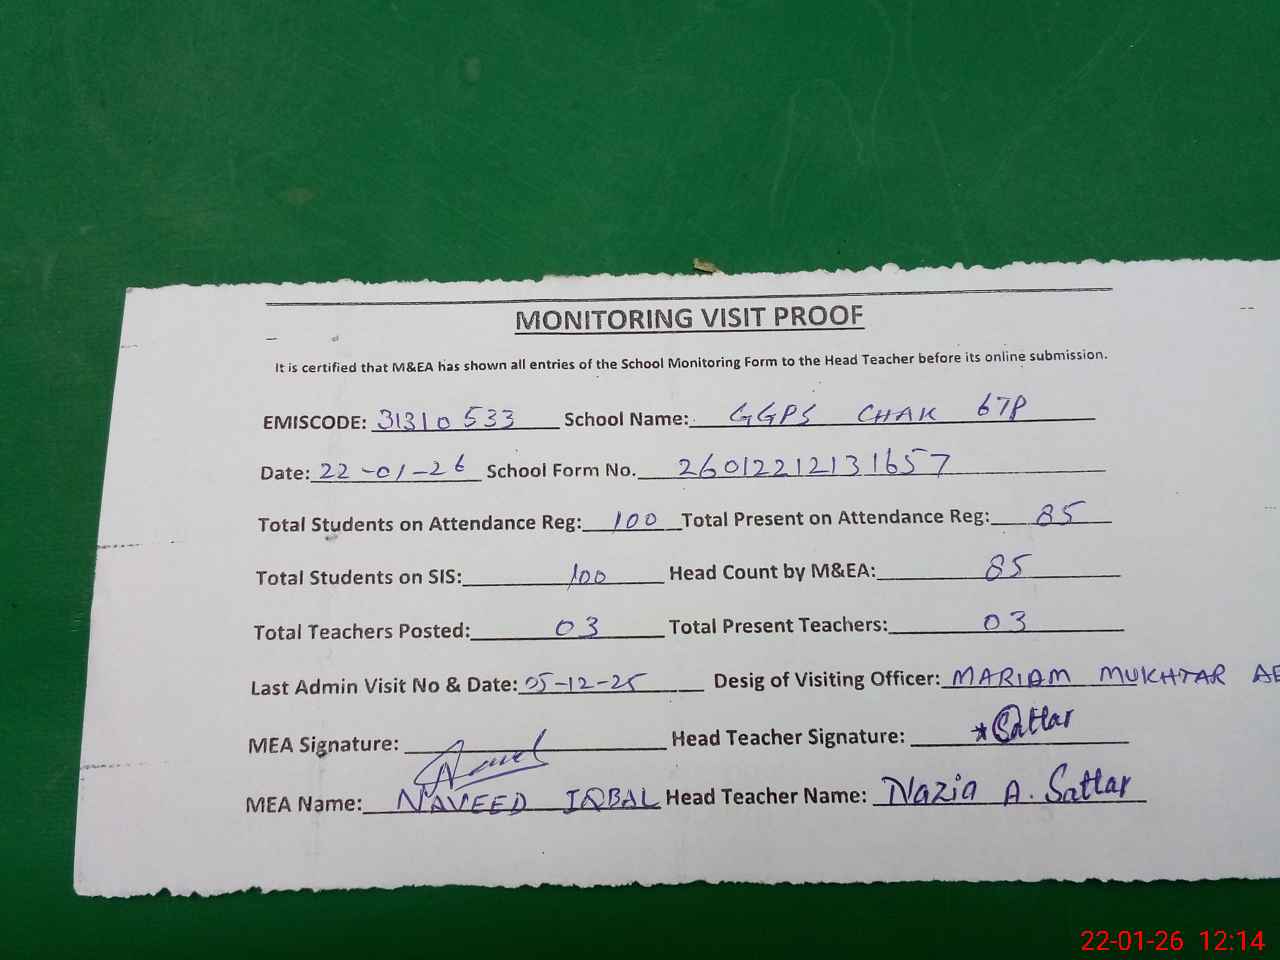 MONITORING VISIT PROOF
It is certified that M&EA has shown all entries of the School Monitoring Form to the Head Teacher before its online submission.
EMISCODE: 31310533 School Name: GGPS CHAK 67P
Date: 22-01-26 School Form No. 26012212131657
Total Students on Attendance Reg: 100 Total Present on Attendance Reg: 85
Total Students on SIS: 100 Head Count by M&EA: 85
Total Teachers Posted: 03 Total Present Teachers: 03
Last Admin Visit No & Date: 05-12-25 Desig of Visiting Officer: MARIAM MUKHTAR
MEA Signature: Head Teacher Signature: *Sattar
MEA Name: NAVEED IQBAL Head Teacher Name: Nazia A. Sattar
22-01-26 12:14